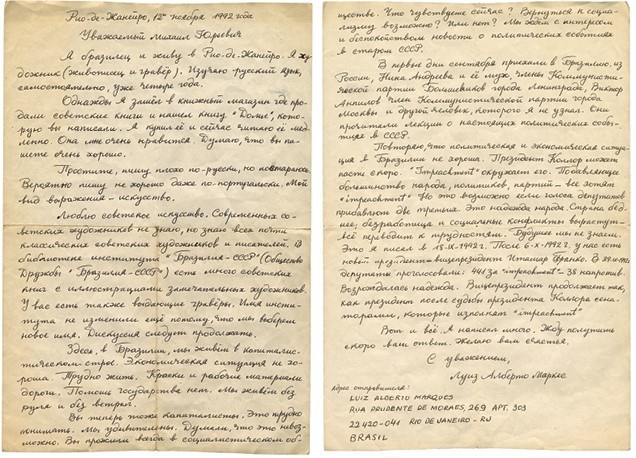 Рио-де-Жанейро, 12го ноября 1992 года
Уважаемый Михаил Юрьевич
Я бразилец и живу в Рио-де-Жанейро. Я ху-
дожник (живописец и гравёр). Изучаю русский язык,
самостоятельно, уже четыре года.
Однажды я зашёл в книжный магазин где про-
дали советские книги и нашёл книгу "Домье", кото-
рую вы написали. Я купил её и сейчас читаю её мед-
ленно. Она мне очень нравится. Думаю, что вы пи-
шете очень хорошо.
Простите, пишу плохо по-русски, но постараюсь.
Вероятно пишу не хорошо даже по-португальски. Мой
вид выражения - искусство.
Люблю советское искусство. Современных со-
ветских художников не знаю, но знаю всех почти
классических советских художников и писателей. В
библиотеке института "Бразилия-СССР" (Общество
Дружбы "Бразилия-СССР") есть много советских
книг с иллюстрациями замечательных художников.
У вас есть также выдающие гравёры. Имя инсти-
тута не изменили ещё потому, что мы выберем
новое имя. Дискуссия следует продолжать.
Здесь, в Бразилии, мы живём в капиталис-
тическом строе. Экономическая ситуация не хо-
роша. Трудно жить. Краски и рабочие материалы
дороги. Помощи государства нет. Мы живём без
руля и без ветрил.
Вы теперь тоже капиталисты. Это трудно
понимать. Мы удивительны. Думали, что это невоз-
можно. Вы прожили всегда в социалистическом об-
ществе. Что чувствуете сейчас? Вернуться к социа-
лизму возможно? Или нет? Мы ждём с интересом
и беспокойством новости о политических событиях
в старом СССР.
В первые дни сентября приехали в Бразилию, из
России, Нина Андреева и её муж члены Коммунисти-
ческой партии Большевиков города Ленинграда, Виктор
Анпилов член Коммунистической партии города
Москвы и другой человек, которого я не узнал. Они
прочитали лекции о настоящих политических собы-
тиях в СССР.
Повторяю, что политическая и экономическая ситуа-
ция в Бразилии не хороша. Президент Коллор может
пасть скоро. "Impeachment" окружает его. Подавляющее
большинство народа, политиков, партий - все хотят
"impeachment". Но это возможно если голоса депутатов
придавают две третьих. Это надежда народа. Страна бед-
нее, безработица и социальные конфликты вырастут -
всё переводит к трудностям. Будущее мы не знаем.
Это я писал в 18-IX-1992г. После 6-X-1992г. у нас есть
новый президент - вицепрезидент Итамар Франко. В 29.IX.1992
депутаты проголосовали: 441 за "impeachment" - 38 напротив.
Возрождалась надежда. Вицепрезидент продолжает так,
как президент после судьбы президента Коллора сена-
торами, которые исполняют "impeachment"
Вот и всё. Я написал много. Жду получить
скоро ваш ответ. Желаю вам счастья.
С уважением,
Луиз Алберто Маркес
Адрес отправителя:
LUIZ ALBERTO MARQUES
RUA PRUDENTE DE MORAES, 269 APT. 303
22420-041 RIO DE JANEIRO - RJ
BRASIL